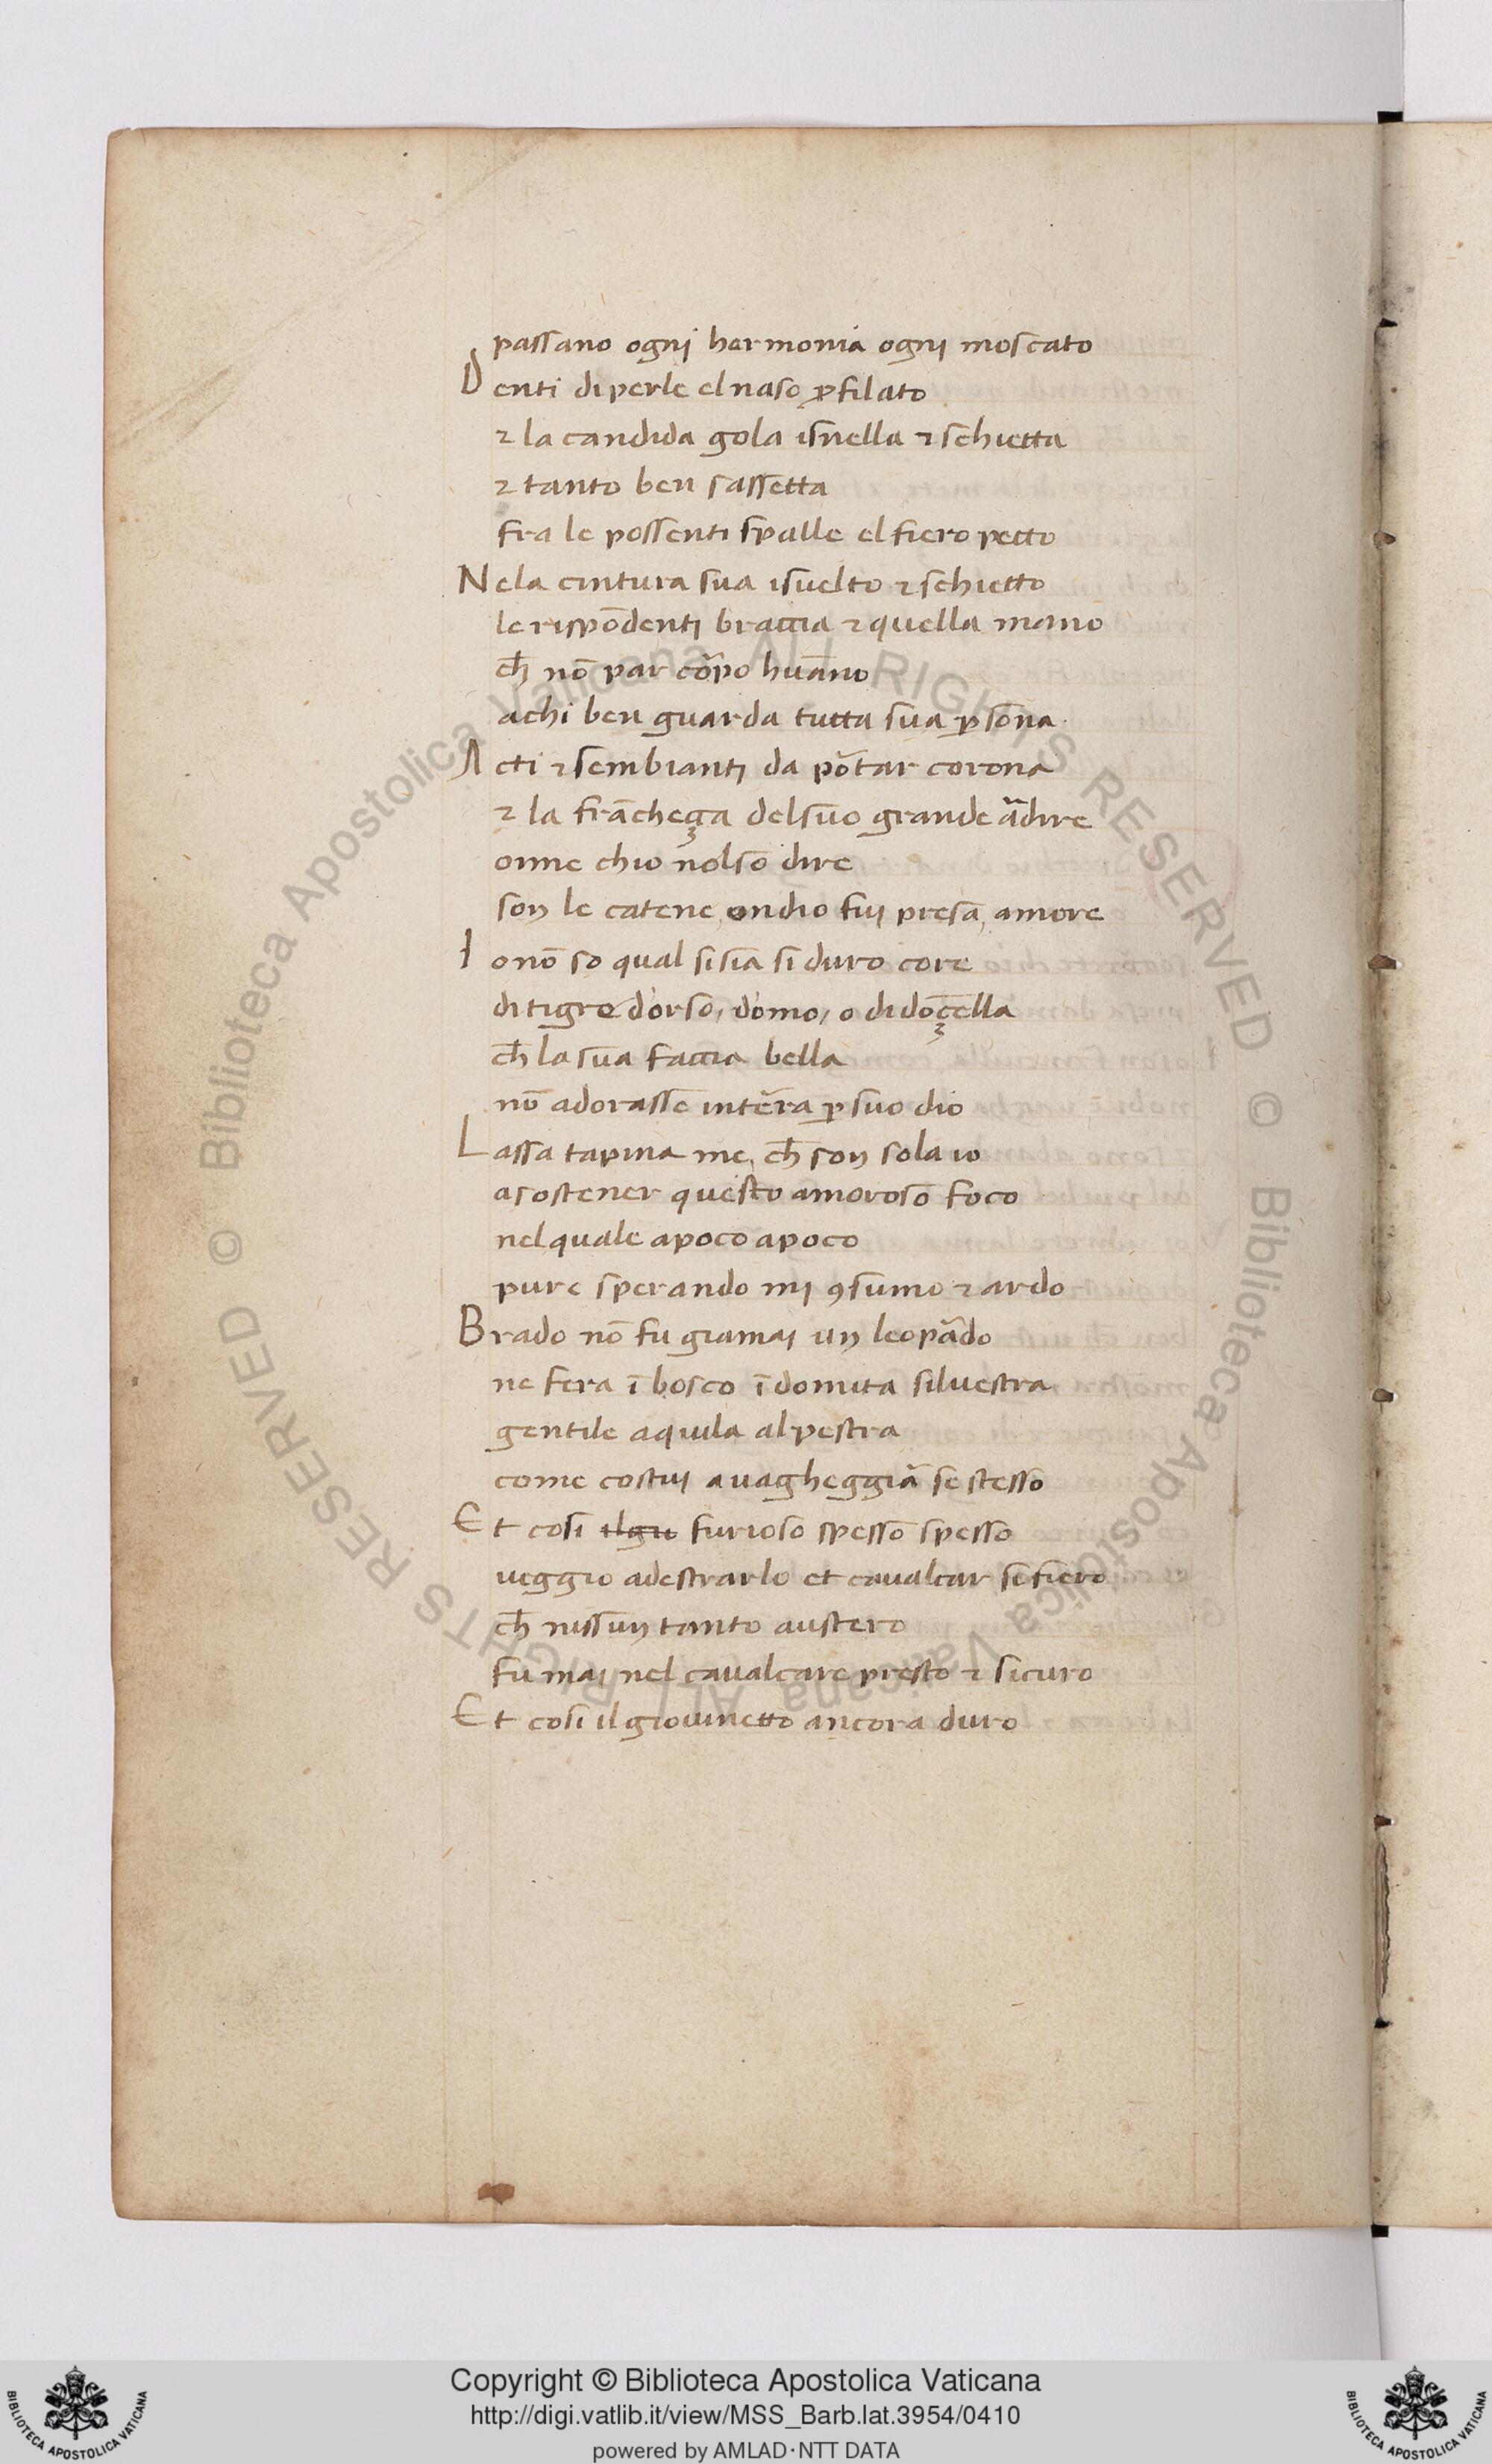 passano ogni hermonia ogni moscato
Denti di perle el naso ꝓfilato
⁊ la candida gola isnella ⁊ schietta
⁊ tanto ben sassetta
fra le possenti spalle el fiero petto
Nela cintura sua isuelto ⁊ schietto
le rispōdenti braccia ⁊ quella mano
ch̄ nō par cōrpo huāno
achi ben guarda tutta sua ꝑsona
Acti ⁊ sembianti da pōtar corona
⁊ la frācheça del suo grande ādire
oime chio nolso dire
son le catene ondio fui presa, amore
Io nō so qual si sia si duro core
di tigre dorso, domo, o di dōçella
ch̄ la sua faccia bella
nō adorasse intērra ꝑ suo dio
Lassa tapina me, ch̄ son sola io
asostener questo amoroso foco
nelquale apoco apoco
pure sperando mi ꝯsumo ⁊ ardo
Brado nō fu giamai un leopādo
ne fera ī bosco īdomita siluestra
gentile aquila alpestra
come costui auagheggiā se stesso
Et cosi ilgio furioso spesso spesso
ueggio adestrarlo et caualcar si fiero
ch̄ nissun tanto austero
fu mai nel caualcare presto ⁊ sicuro
Et cosi il giouinetto ancora duro
© Biblioteca Apostolica Vaticana ALL RIGHTS RESERVED © Biblioteca Apostolica Vaticana ALL RIGHTS RESERVED
Copyright © Biblioteca Apostolica Vaticana
http://digi.vatlib.it/view/MSS_Barb.lat.3954/0410
powered by AMLAD·NTT DATA
BIBLIOTECA APOSTOLICA VATICANA
BIBLIOTECA APOSTOLICA VATICANA